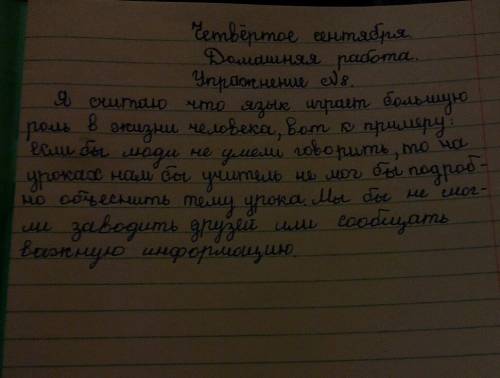 Четвёртое сентября.
Домашняя работа.
Упражнение №8.
Я считаю что язык играет большую
роль в жизни человека, вот к примеру:
если бы люди не умели говорить, то на
уроках нам бы учитель не мог бы подроб-
но объеснить тему урока. Мы бы не смог-
ли заводить друзей или сообщать
важную информацию.